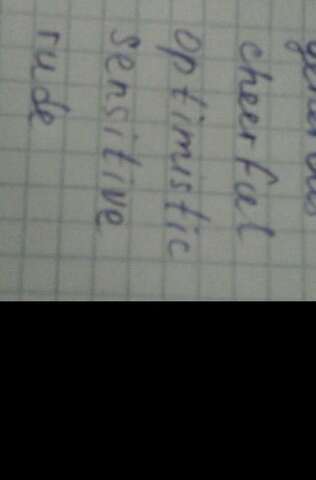 generous
cheerful
optimistic
sensitive
rude